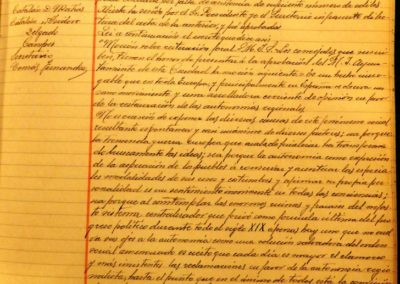 Catalán D. Matías
Catalán D. Isidoro
Delgado
Campos
Contreras
Comas Fernández
por falta de asistencia de suficiente número de vocales.
el Sr. Presidente y el Secretario
lectura del acta de la anterior, y fué aprobada.
Leí a continuación el escrito que dice así:
"Moción sobre Los concejales que suscriben,
tienen el honor de presentar a la aprobación del M. I. Ayun-
tamiento de esta Ciudad la moción siguiente: Es un hecho inne-
gable que en toda Europa, y principalmente en España se observa un
vivo movimiento y una avasalladora corriente de opinión en favor
de la restauración de las autonomías regionales.
No es ocasión de exponer las diversas causas de este fenómeno social
resultante espontáneo y casi unánime de diversos factores; sea porque
la tremenda guerra europea que acaba de finalizar ha transformado
las ideas; sea porque la autonomía como expresión
de la aspiración de los pueblos a conservar y acentuar las especia-
les modalidades de sus usos y costumbres y afirmar su propia per-
sonalidad es un sentimiento inmanente en todas las conciencias;
sea porque al contemplar las enormes ruinas y fracaso del
sistema centralizador que privó como fórmula última del pro-
greso político durante todo el siglo XIX apenas hay uno que no vuel-
va sus ojos a la autonomía como una solución salvadora del orden
social es cierto que cada día es mayor el clamoreo
y más insistentes las reclamaciones en favor de la autonomía regio-
nalista, hasta el punto que en el ánimo de todos está la convicción